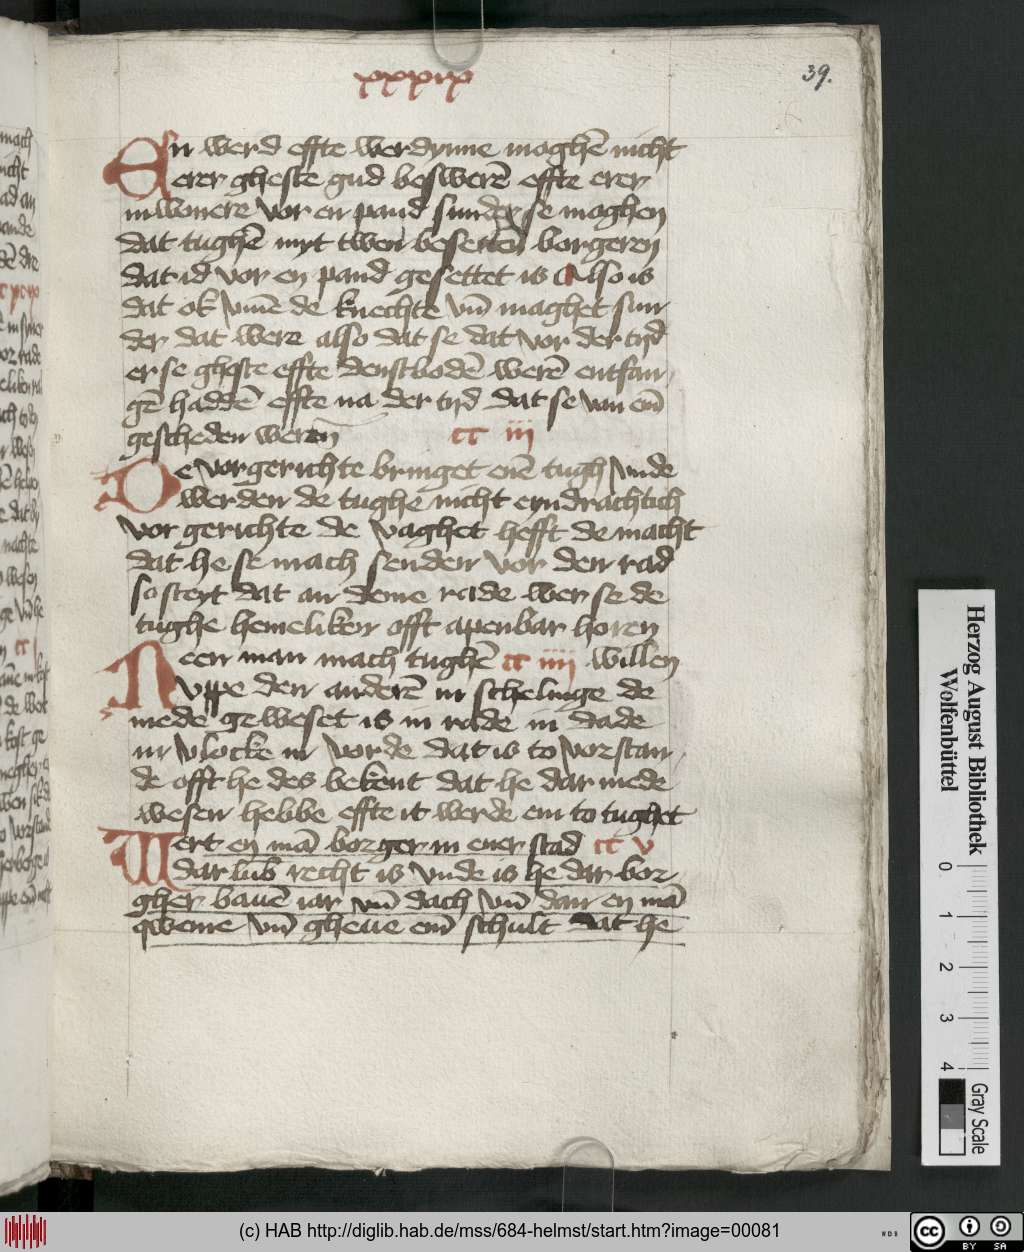 xxxix
39.
En werd effte werdynne moghē nicht
erer gheste gud beswerē effte erer
inwonere vor en pand sunder se moghen
dat tughē myt twen besetten borgeren
dat id vor en pand gesettet is Also is
dat ok vm̄e de knechte vn̄ maghet sun
der dat were also dat se dat vor der tyd
er se gheste effte denstbodē werē entfan
gē haddē effte na der tyd dat se van em̄
gescheden weren cc iii
De vor gerichte bringet enē tugh vnde
werden de tughe nicht eyndrachtich
vor gerichte de vaghet hefft de macht
dat he se mach senden vor den rad
so steyt dat an deme rade wer se de
tughe hemeliken offt apenbar horen
Neen man mach tughē cc iiii willen
vppe den anderē in schelinge de
mede geweset is in rade in dade
in vlocke in vorde dat is to vorstan
de offt he des bekent dat he dar mede
wesen hebbe effte it werde em to tughet
Wert en mā borger in ener stad cc v
dar lub recht is vnde is he dar bor
gher bauē iar vn̄ dach vn̄ dan en mā
qweme vn̄ gheue em̄ schult dat he
Herzog August Bibliothek
Wolfenbüttel
0 1 2 3 4
Gray Scale
(c) HAB http://diglib.hab.de/mss/684-helmst/start.htm?image=00081
cc BY SA